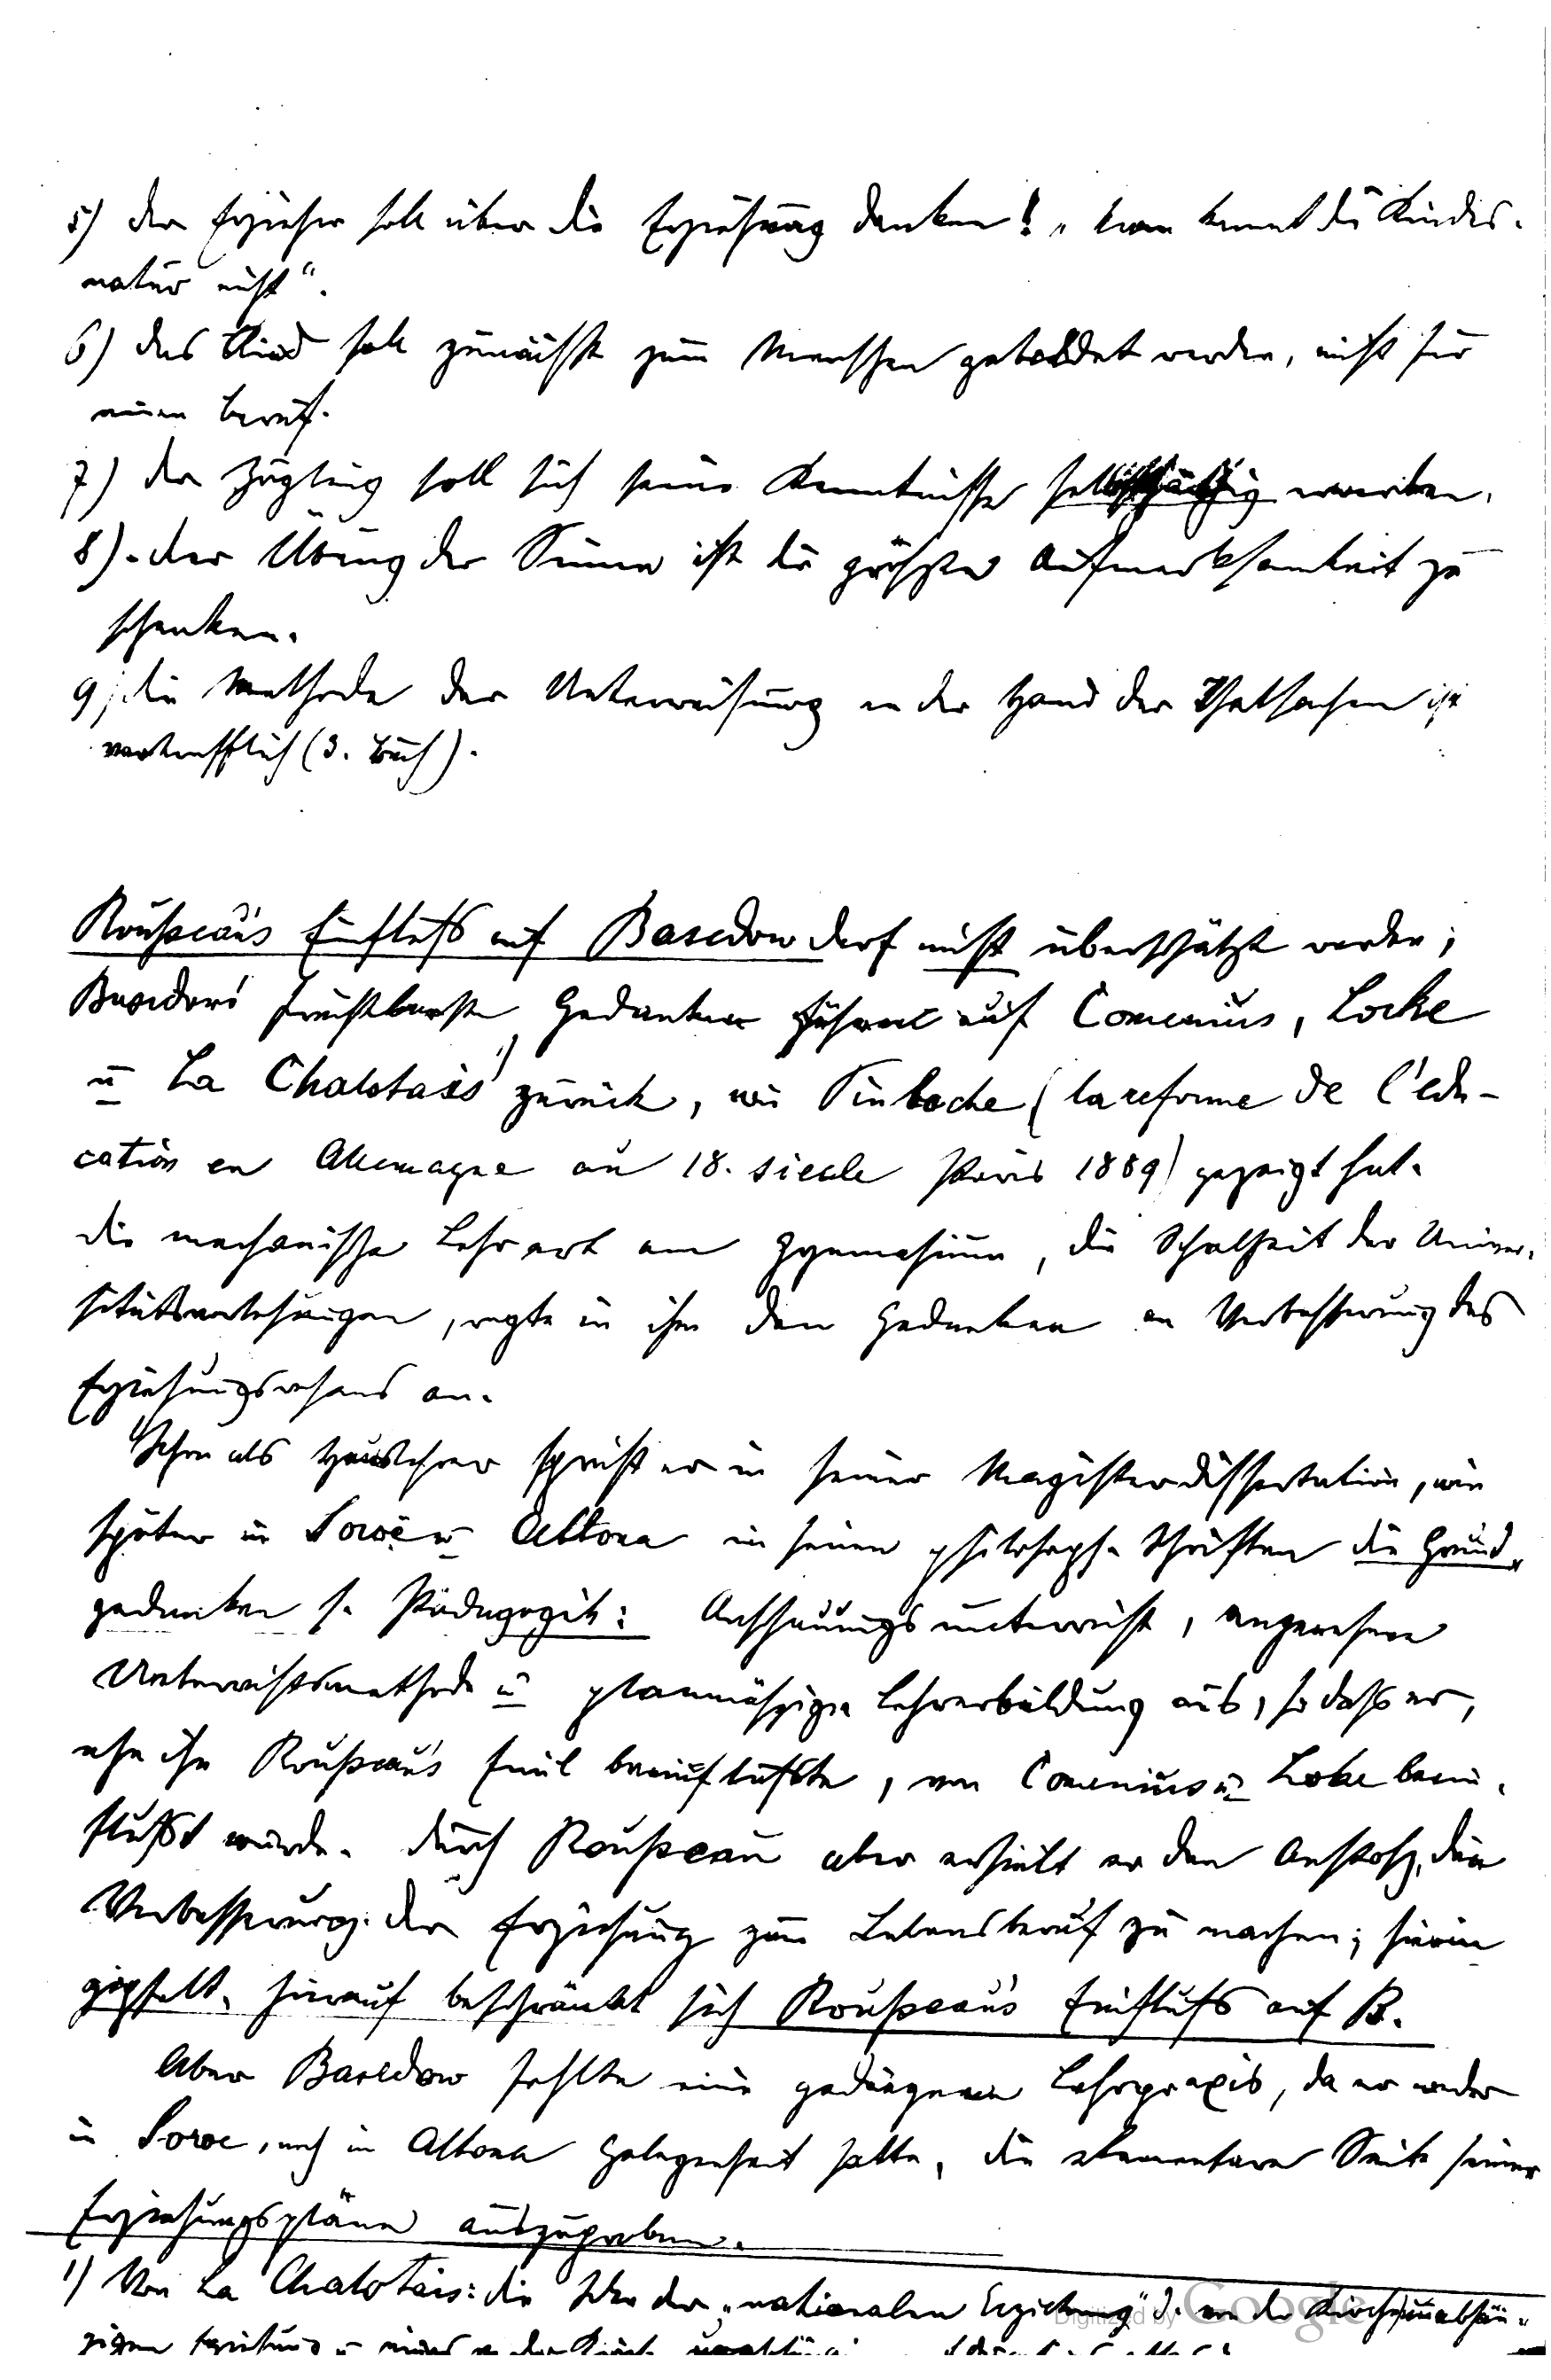 5) der Erzieher soll über die Erziehung denken! „man kennt die Kindes-
natur nicht“.
6) das Kind soll zunächst zum Menschen gebildet werden, nicht für
einen Beruf.
7) der Zögling soll sich seine Kenntnisse selbstthätig erwerben.
8) der Übung der Sinne ist die größte Aufmerksamkeit zu
schenken.
9) die Methode der Unterweisung an der Hand der Thatsachen ist
vortrefflich (3. Buch).
Roußeau's Einfluß auf Basedow darf nicht überschätzt werden;
Basedow's fruchtbarste Gedanken führen auf Comenius, Locke
u La Chalotais 1) zurück, wie Pinloche (la reforme de l'edu-
cation en Allemagne au 18. siecle Paris 1889) gezeigt hat.
die mechanische Lehrart am Gymnasium, die Schalheit der Univer-
sitätsvorlesungen, regte in ihm den Gedanken an Verbesserung des
Erziehungswesens an.
Schon als Hauslehrer spricht er in seiner Magisterdissertation, wie
später in Soroë u Altona in seinen philosoph. Schriften die Grund-
gedanken s. Pädagogik: Anschauungsunterricht, angenehme
Unterrichtsmethode u planmäßige Lehrerbildung aus, so daß er,
ehe ihn Roußeau's Emil beeinflußte, von Comenius u Loke beein-
flußt wurde. Durch Roußeau aber erhielt er den Anstoß, die
Verbesserung der Erziehung zum Lebensberuf zu machen; hierin
gipfelt, hierauf beschränkt sich Roußeau's Einfluß auf B.
Aber Basedow fehlte eine gediegene Lehrpraxis, da er weder
in Soroe, noch in Altona Gelegenheit hatte, die elementare Seite seiner
Erziehungspläne auszuproben.
1) Von La Chalotais: die Idee der „nationalen Erziehung“ d. von der Kirche unabhän-
gigen Erziehung u
Digitized by Google